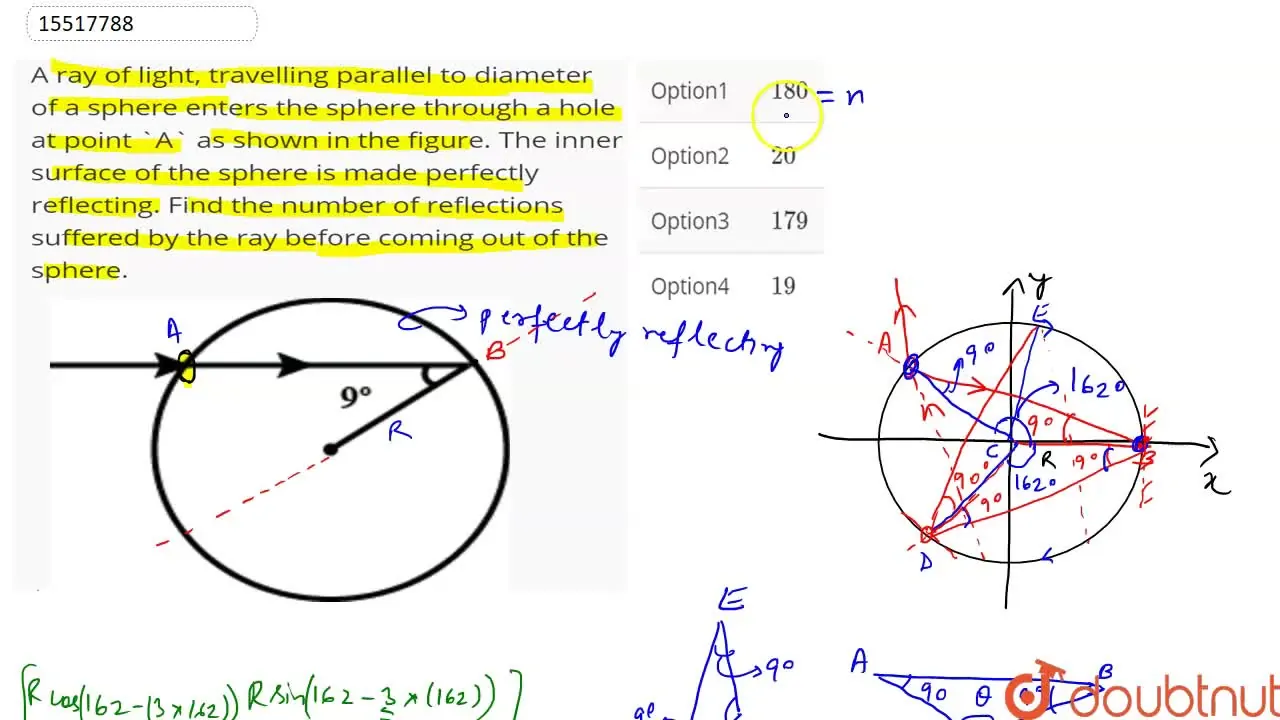 15517788
A ray of light, travelling parallel to diameter
of a sphere enters the sphere through a hole
at point `A` as shown in the figure. The inner
surface of the sphere is made perfectly
reflecting. Find the number of reflections
suffered by the ray before coming out of the
sphere.
Option1 180 = n
Option2 20
Option3 179
Option4 19
A
perfectly reflecting
B
9°
R
y
E
A
9°
162°
9°
C
R
9°
B
x
162°
9°
9°
D
E
9°
9°
A
B
9°
θ
9°
[R cos(162-(3×162)) R sin(162-3×(162))]
2
doubtnut